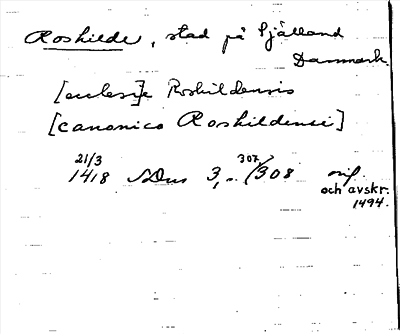 Roskilde, stad på Själland
Danmark.
[ecclesi]e Roskildensis
[canonico Roskildensi]
21/3 307
1418 SDns 3, s. /308 orig.
och avskr.
1494.